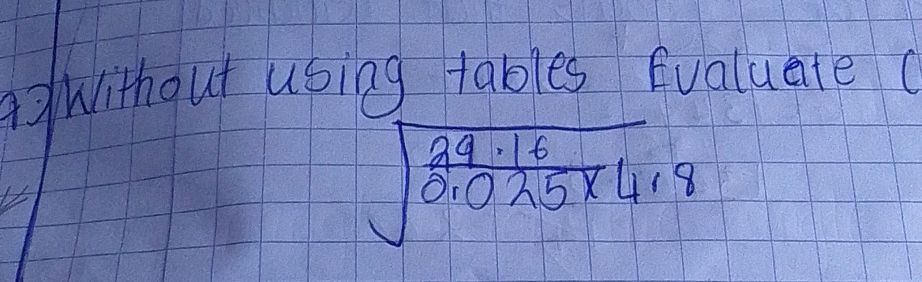 Without using tables Evaluate (
29.16
0.025 x 4.8